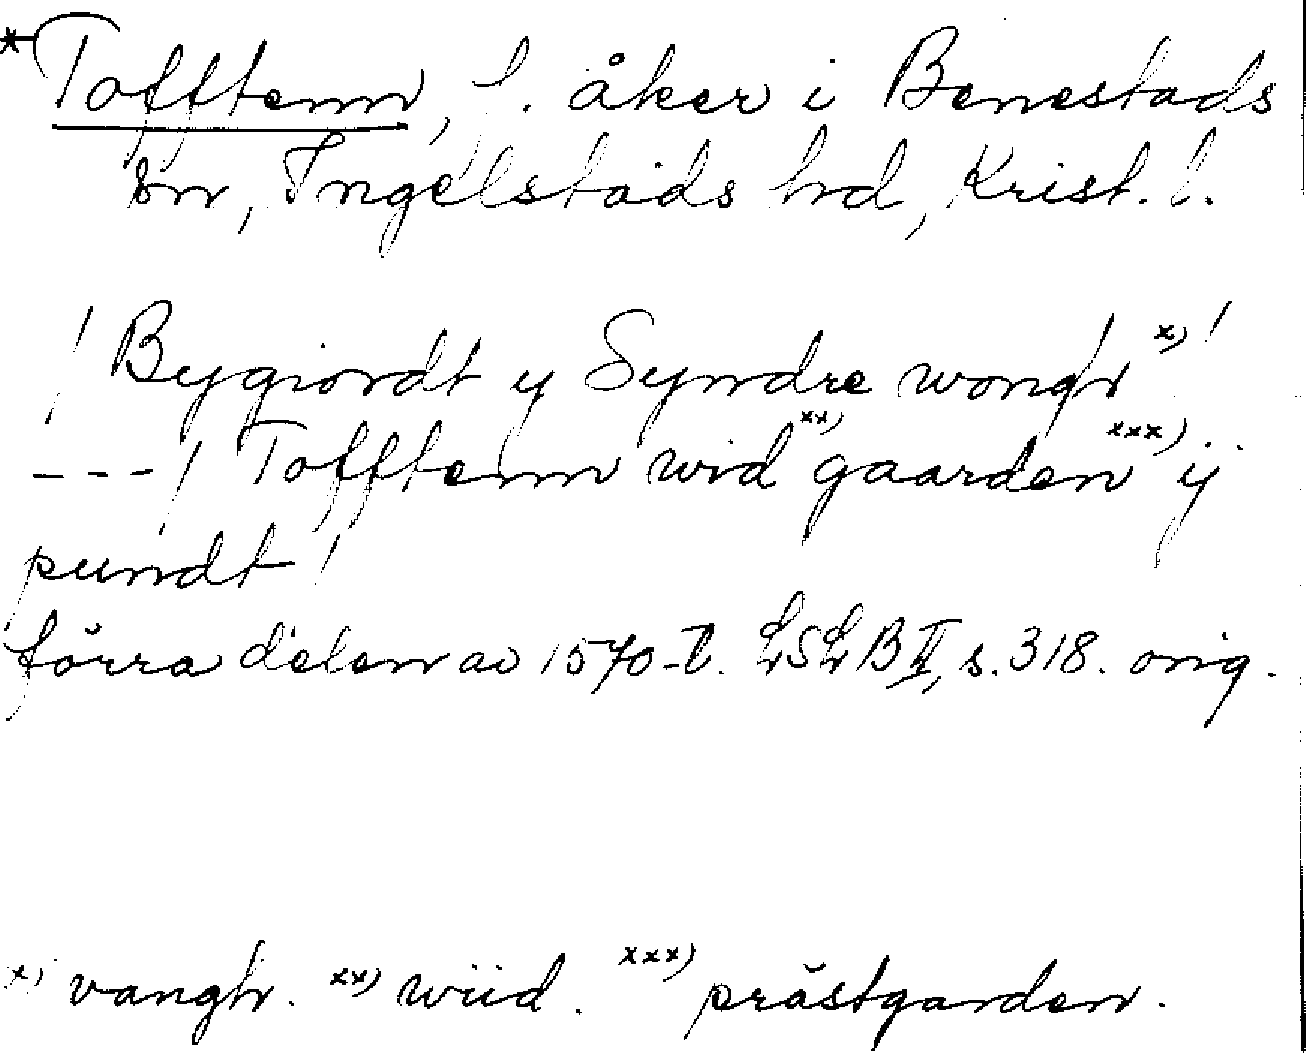 *Tofftenn, f. åker i Benestads
sn, Ingelstads hd, Krist. l.
/ Bygiordt y Syndre wongh x) /
---/ Tofftenn wid xx) gaarden xxx) ij
pundt /
förra delen av 1570-t. LSLB II, s. 318. orig.
x) vangh. xx) wiid. xxx) prästgarden.